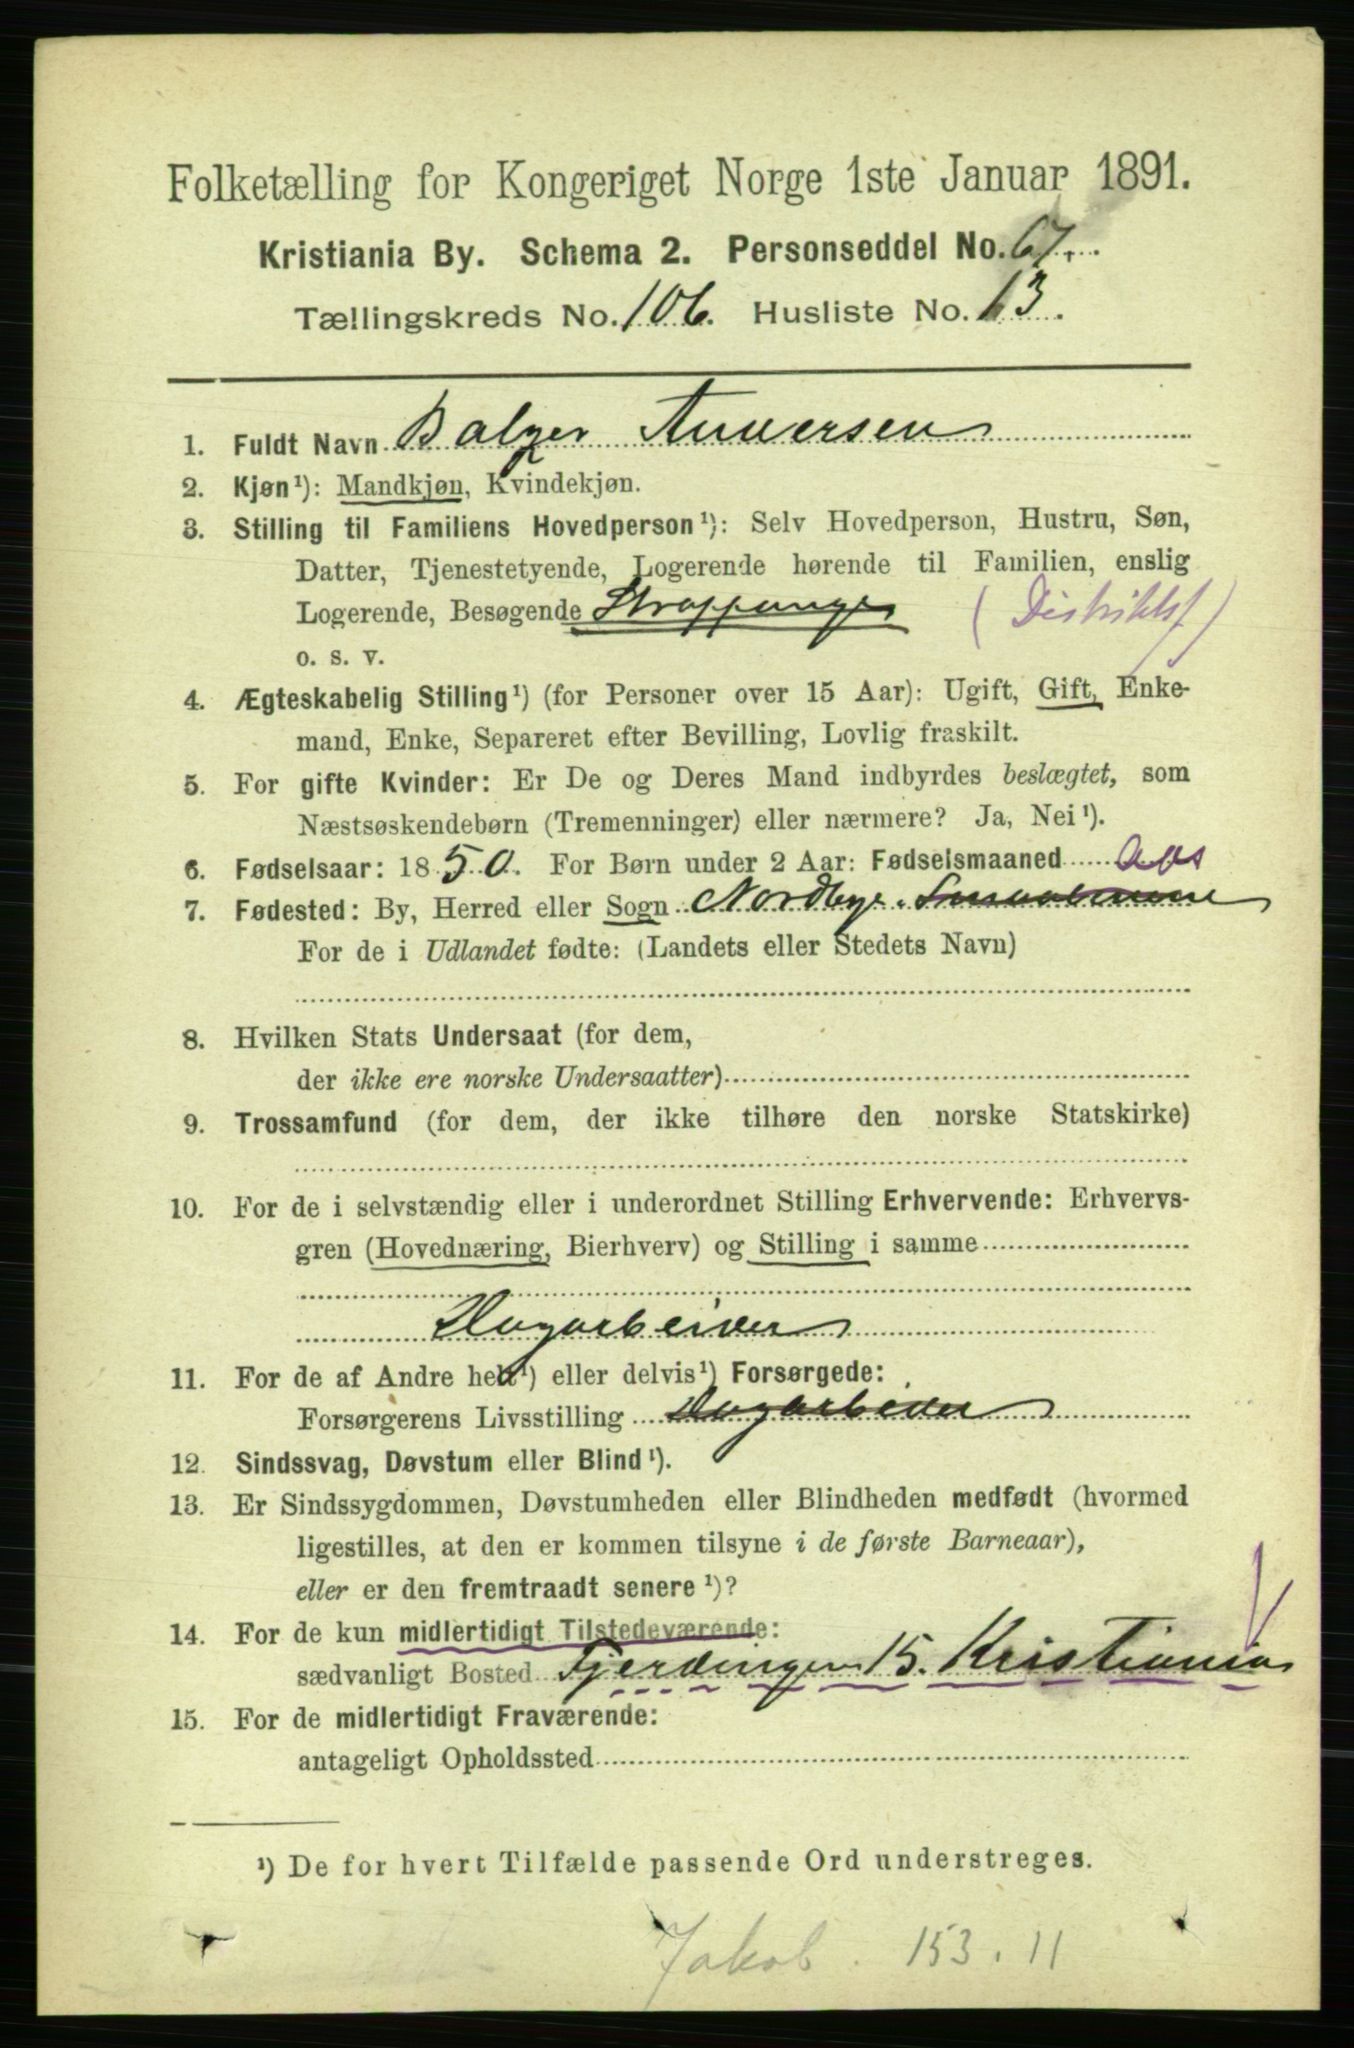 Folketælling for Kongeriget Norge 1ste Januar 1891.
Kristiania By. Schema 2. Personseddel No. 67.
Tællingskreds No. 106. Husliste No. 13.
1. Fuldt Navn Balzer Andersen
2. Kjøn¹): Mandkjøn, Kvindekjøn.
3. Stilling til Familiens Hovedperson¹): Selv Hovedperson, Hustru, Søn,
Datter, Tjenestetyende, Logerende hørende til Familien, enslig
Logerende, Besøgende Straffange (Distriktsf)
o. s. v.
4. Ægteskabelig Stilling¹) (for Personer over 15 Aar): Ugift, Gift, Enke-
mand, Enke, Separeret efter Bevilling, Lovlig fraskilt.
5. For gifte Kvinder: Er De og Deres Mand indbyrdes beslægtet, som
Næstsøskendebørn (Tremenninger) eller nærmere? Ja, Nei¹).
6. Fødselsaar: 1850. For Børn under 2 Aar: Fødselsmaaned
7. Fødested: By, Herred eller Sogn Nordbye. Smaalenene
For de i Udlandet fødte: (Landets eller Stedets Navn)
8. Hvilken Stats Undersaat (for dem,
der ikke ere norske Undersaatter)
9. Trossamfund (for dem, der ikke tilhøre den norske Statskirke)
10. For de i selvstændig eller i underordnet Stilling Erhvervende: Erhvervs-
gren (Hovednæring, Bierhverv) og Stilling i samme
Dagarbeider
11. For de af Andre helt¹) eller delvis¹) Forsørgede:
Forsørgerens Livsstilling Dagarbeider
12. Sindssvag, Døvstum eller Blind¹).
13. Er Sindssygdommen, Døvstumheden eller Blindheden medfødt (hvormed
ligestilles, at den er kommen tilsyne i de første Barneaar),
eller er den fremtraadt senere¹)?
14. For de kun midlertidigt Tilstedeværende:
sædvanligt Bosted Fjerdingen 15. Kristiania
15. For de midlertidigt Fraværende:
antageligt Opholdssted
¹) De for hvert Tilfælde passende Ord understreges.
Jakob. 153. 11